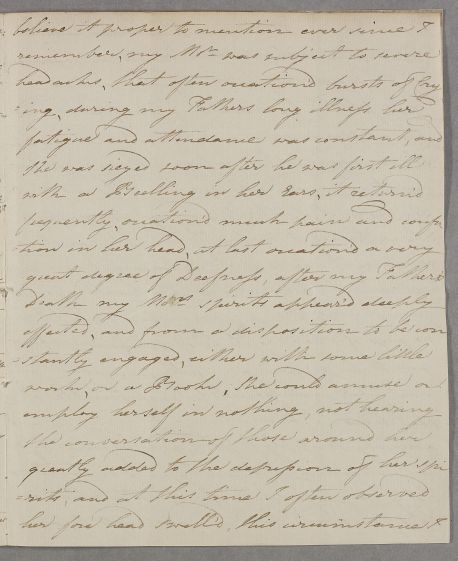 believe it proper to mention ever since I
remember, my Mor. was subject to severe
headachs, that often ocationd bursts of Cry
=ing, during my Fathers long illness her
fatigue and attendance was constant, and
She was siezed soon after he was first ill
with a Swelling in her Ears, it returnd
frequently, ocationd much pain and confu
=tion in her head, at last ocationd a very
great degree of Deafness, after my Fathers
Death my Mors. spirits appeard deeply
affected, and from a disposition to be con
=stantly engaged, either with some little
work, or a Book, She could amuse or
employ herself in nothing, not hearing
the conversation of those around her
greatly added to the depression of her spi
=rits, and at this time I often observed
her fore head swell'd, this circumstance I